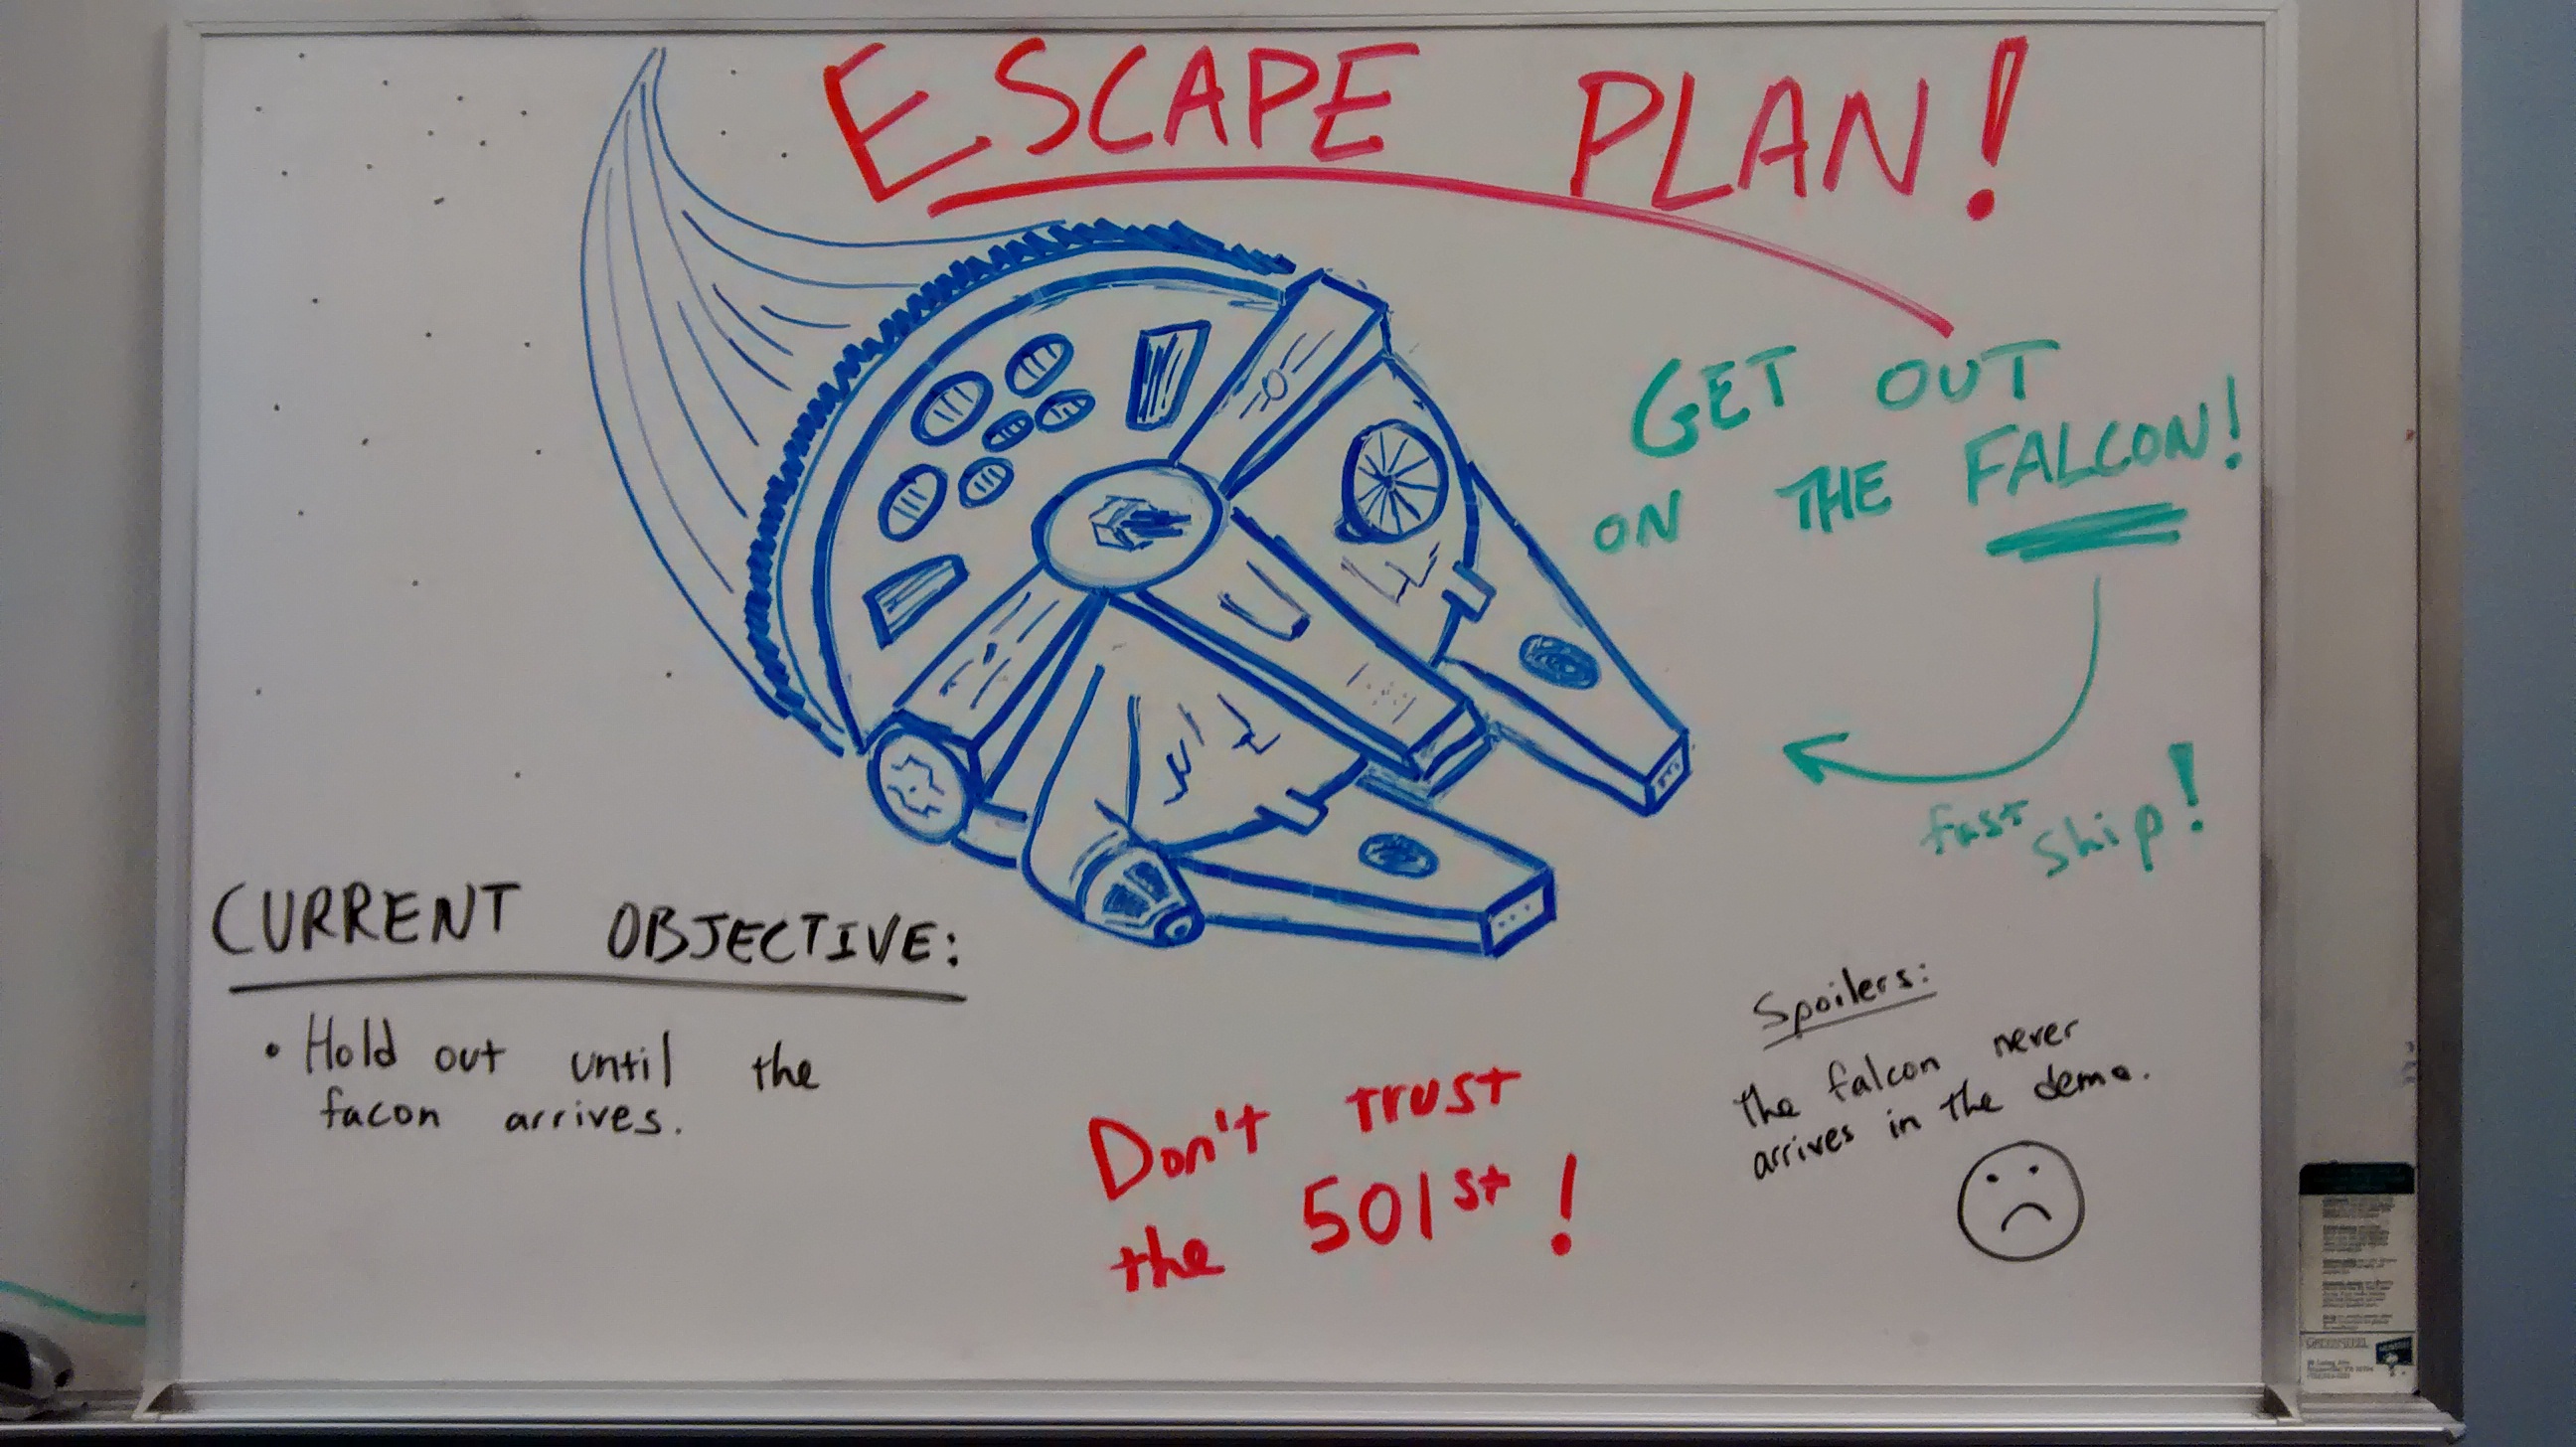 ESCAPE PLAN!
GET OUT
ON THE FALCON!
fast
ship!
CURRENT OBJECTIVE:
• Hold out until the
facon arrives.
Don't trust
the 501st!
Spoilers:
the falcon never
arrives in the demo.